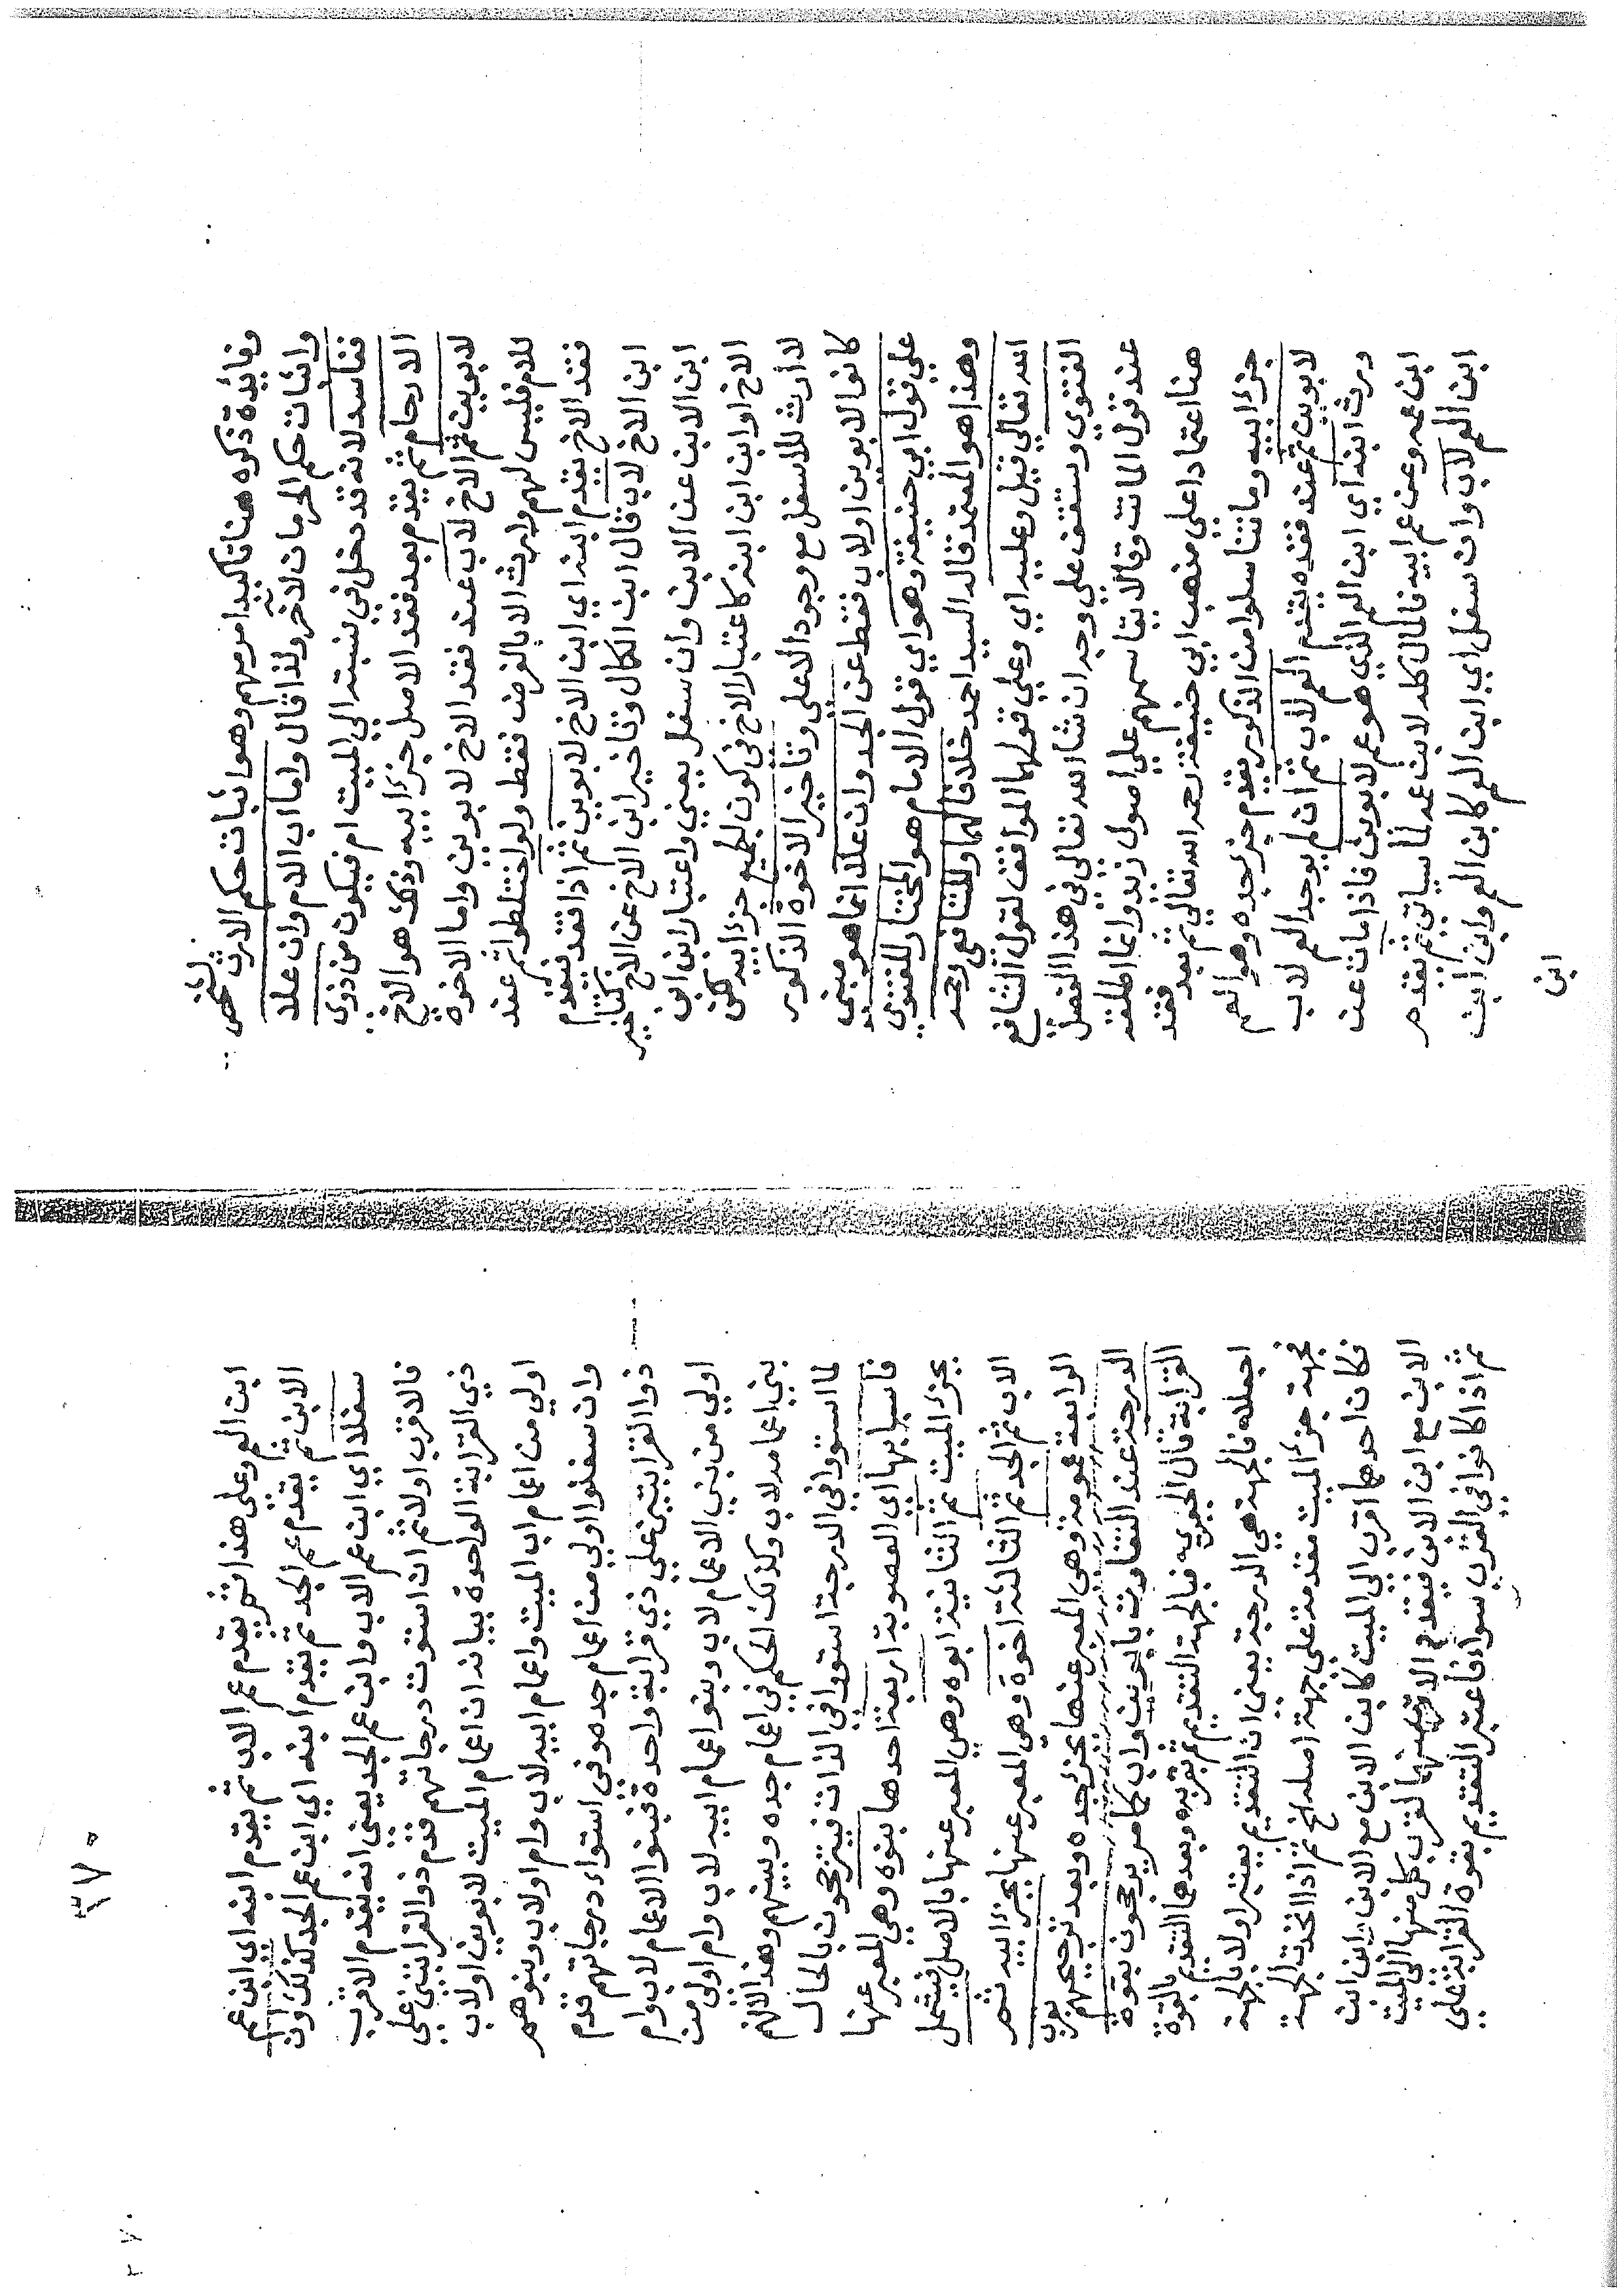 وفايدة ذكره هنا تاكيدا مرمهم وهو اثبات حكم الارث لشخص
واثبات حكم الحرمان لآخر ولذا قال واما اب الام وان علا
ففاسد لانه قد دخل في نسبته الي الميت ام فيكون من ذوي
الارحام ثم يقدم بعد فقد الاصل جزأ ابيه وذلك هو الاخ
لابوين ثم الاخ لاب عند فقد الاخ لابوين واما الاخوة
للام فليس لهم ارث الا بالفرض فقط ولو اختلطوا ثم عند
فقد الاخ يقدم ابنه اي ابن الاخ لابوين ثم اذا فقد فيقدم
ابن الاخ لاب قال ابن الكمال وتاخير ابن الاخ عن الاخ كتاخير
ابن الابن عن الابن وان سفل يعني واعتبار ابن ابن
الاخ او ابن ابن ابنه كاعتبار الاخ في كون الجميع جزأ ابيه لكن
لا ارث للاسفل مع وجود الاعلي وتاخير الاخوة الذكور
كانوا لابوين او لاب فقط عن الجد وان علا انما هو مبني
علي قول ابي حنيفة وهو اي قول الامام هو المختار للفتوي
وهذا هو المعتمد قاله السيد احمد خلافا لهما وللشافعي رحمه
الله تعالي قيل وعليه اي وعلي قولهما الموافق لقول الشافعي
الفتوي وستقف علي وجه ان شا الله تعالي في هذا الفصل
عند قول الماتن وقالا يقاسمهم علي اصول زيد وانما اطلقه
هنا اعتمادا علي مذهب ابي حنيفة رحمه الله تعالي ثم بعد فقد
جزأ ابيه وما تناسلوا من الذكور يقدم جزء جده وهو العم
لابوين ثم عند فقده يقدم العم لاب ثم ان لم يوجد العم لاب
ورث ابنه اي ابن العم الذي هو عم لابوين فاذا مات عن
ابن عمه وعن عم ابيه فالمال كله لابن عمه لما سياتي ثم يقدم
ابن العم لاب وان سفل اي ابن العم كابن العم وابن ابن
ابن
ابن العم وعلي هذا ثم يقدم عم الاب ثم يقدم ابنه اي ابن عم
الاب ثم يقدم عم الجد ثم يقدم ابنه اي ابن عم الجد كذلك وان
سفلا اي ابن عم الاب وابن عم الجد يعني انه يقدم الاقرب
فالاقرب اولا ثم ان استوت درجاتهم قدم ذو القرابتين علي
ذي القرابة الواحدة بيانه ان اعمام الميت لابوين او لاب
اولي من اعمام اب الميت واعمام ابيه لاب وام او لاب وبنوهم
وان سفلوا اولي من اعمام جده وفي استواء درجاتهم قدم
ذوا القرابتين علي ذي قرابة واحدة فبنوا الاعمام لاب وام
اولي من بني الاعمام لاب وبنوا اعمام ابيه لاب وام اولي من
بني اعمامه لاب وكذلك الحكم في اعمام جده وبينهم وهذا لانهم
لما استووا في الدرجة استووا في الذات فيترجحون بالحال
فاسبابها اي العصوبة اربعة احدها بنوه وهي المعبر عنها
بجزأ الميت ثم الثانية ابوه وهي المعبر عنها بالاصل فتشمل
الاب ثم الجد ثم الثالثة اخوة وهي المعبر عنها بجزأ ابيه ثم
الرابعة عمومة وهي المعبر عنها بجزء جده وبعد ترجيحهم بقرب
الدرجة عند التفاوت بابوين واب كما مر يرجحون بقوة
القرابة قال الجعبري فبالجهة التقديم ثم بقربه وبعدهما التقديم بالقوة
اجعله فالجهة هي الدرجة يعني ان التقديم يعتبر اولا بالجهة
فجهة جزأ الميت مقدمة علي جهة اصله الخ ثم اذا اتحدت الجهة
فكان احدهما اقرب الي الميت كابن الابن مع الابن وابن ابن
الابن مع ابن الابن فيقدم الاقرب منهما لقرب كل منها الي الميت
ثم اذا كانوا في القرب سواء فاعتبر التقديم بقوة القرابة علي
٣٧٠